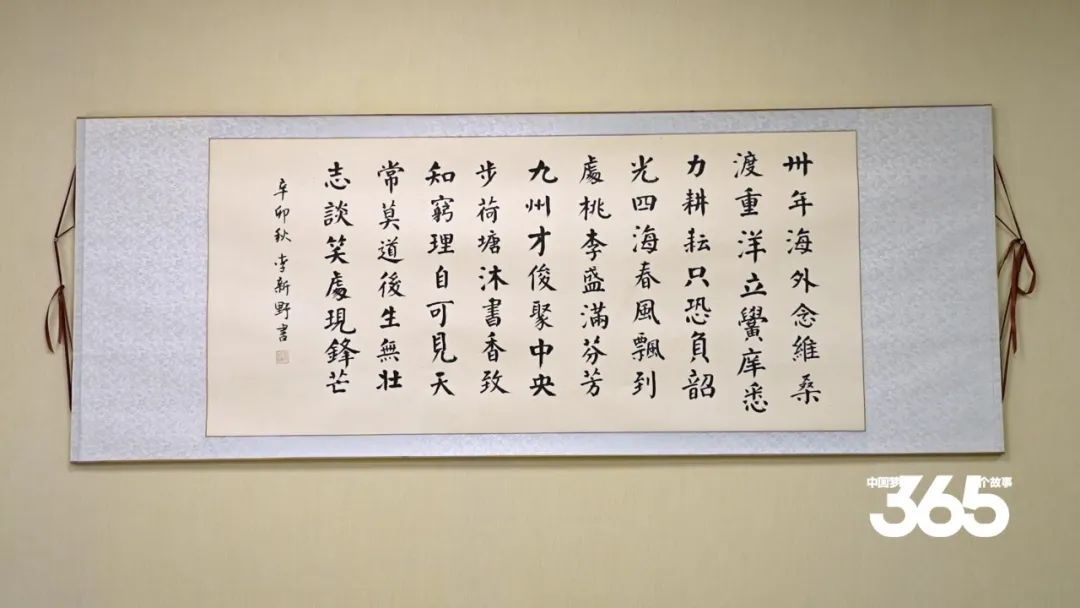 卅年海外念維桑
渡重洋立黌庠悉
力耕耘只恐負韶
光四海春風飄到
處桃李盛滿芬芳
九州才俊聚中央
步荷塘沐書香致
知窮理自可見天
常莫道後生無壯
志談笑處現鋒芒
辛卯秋 李新野書
中国梦365个故事